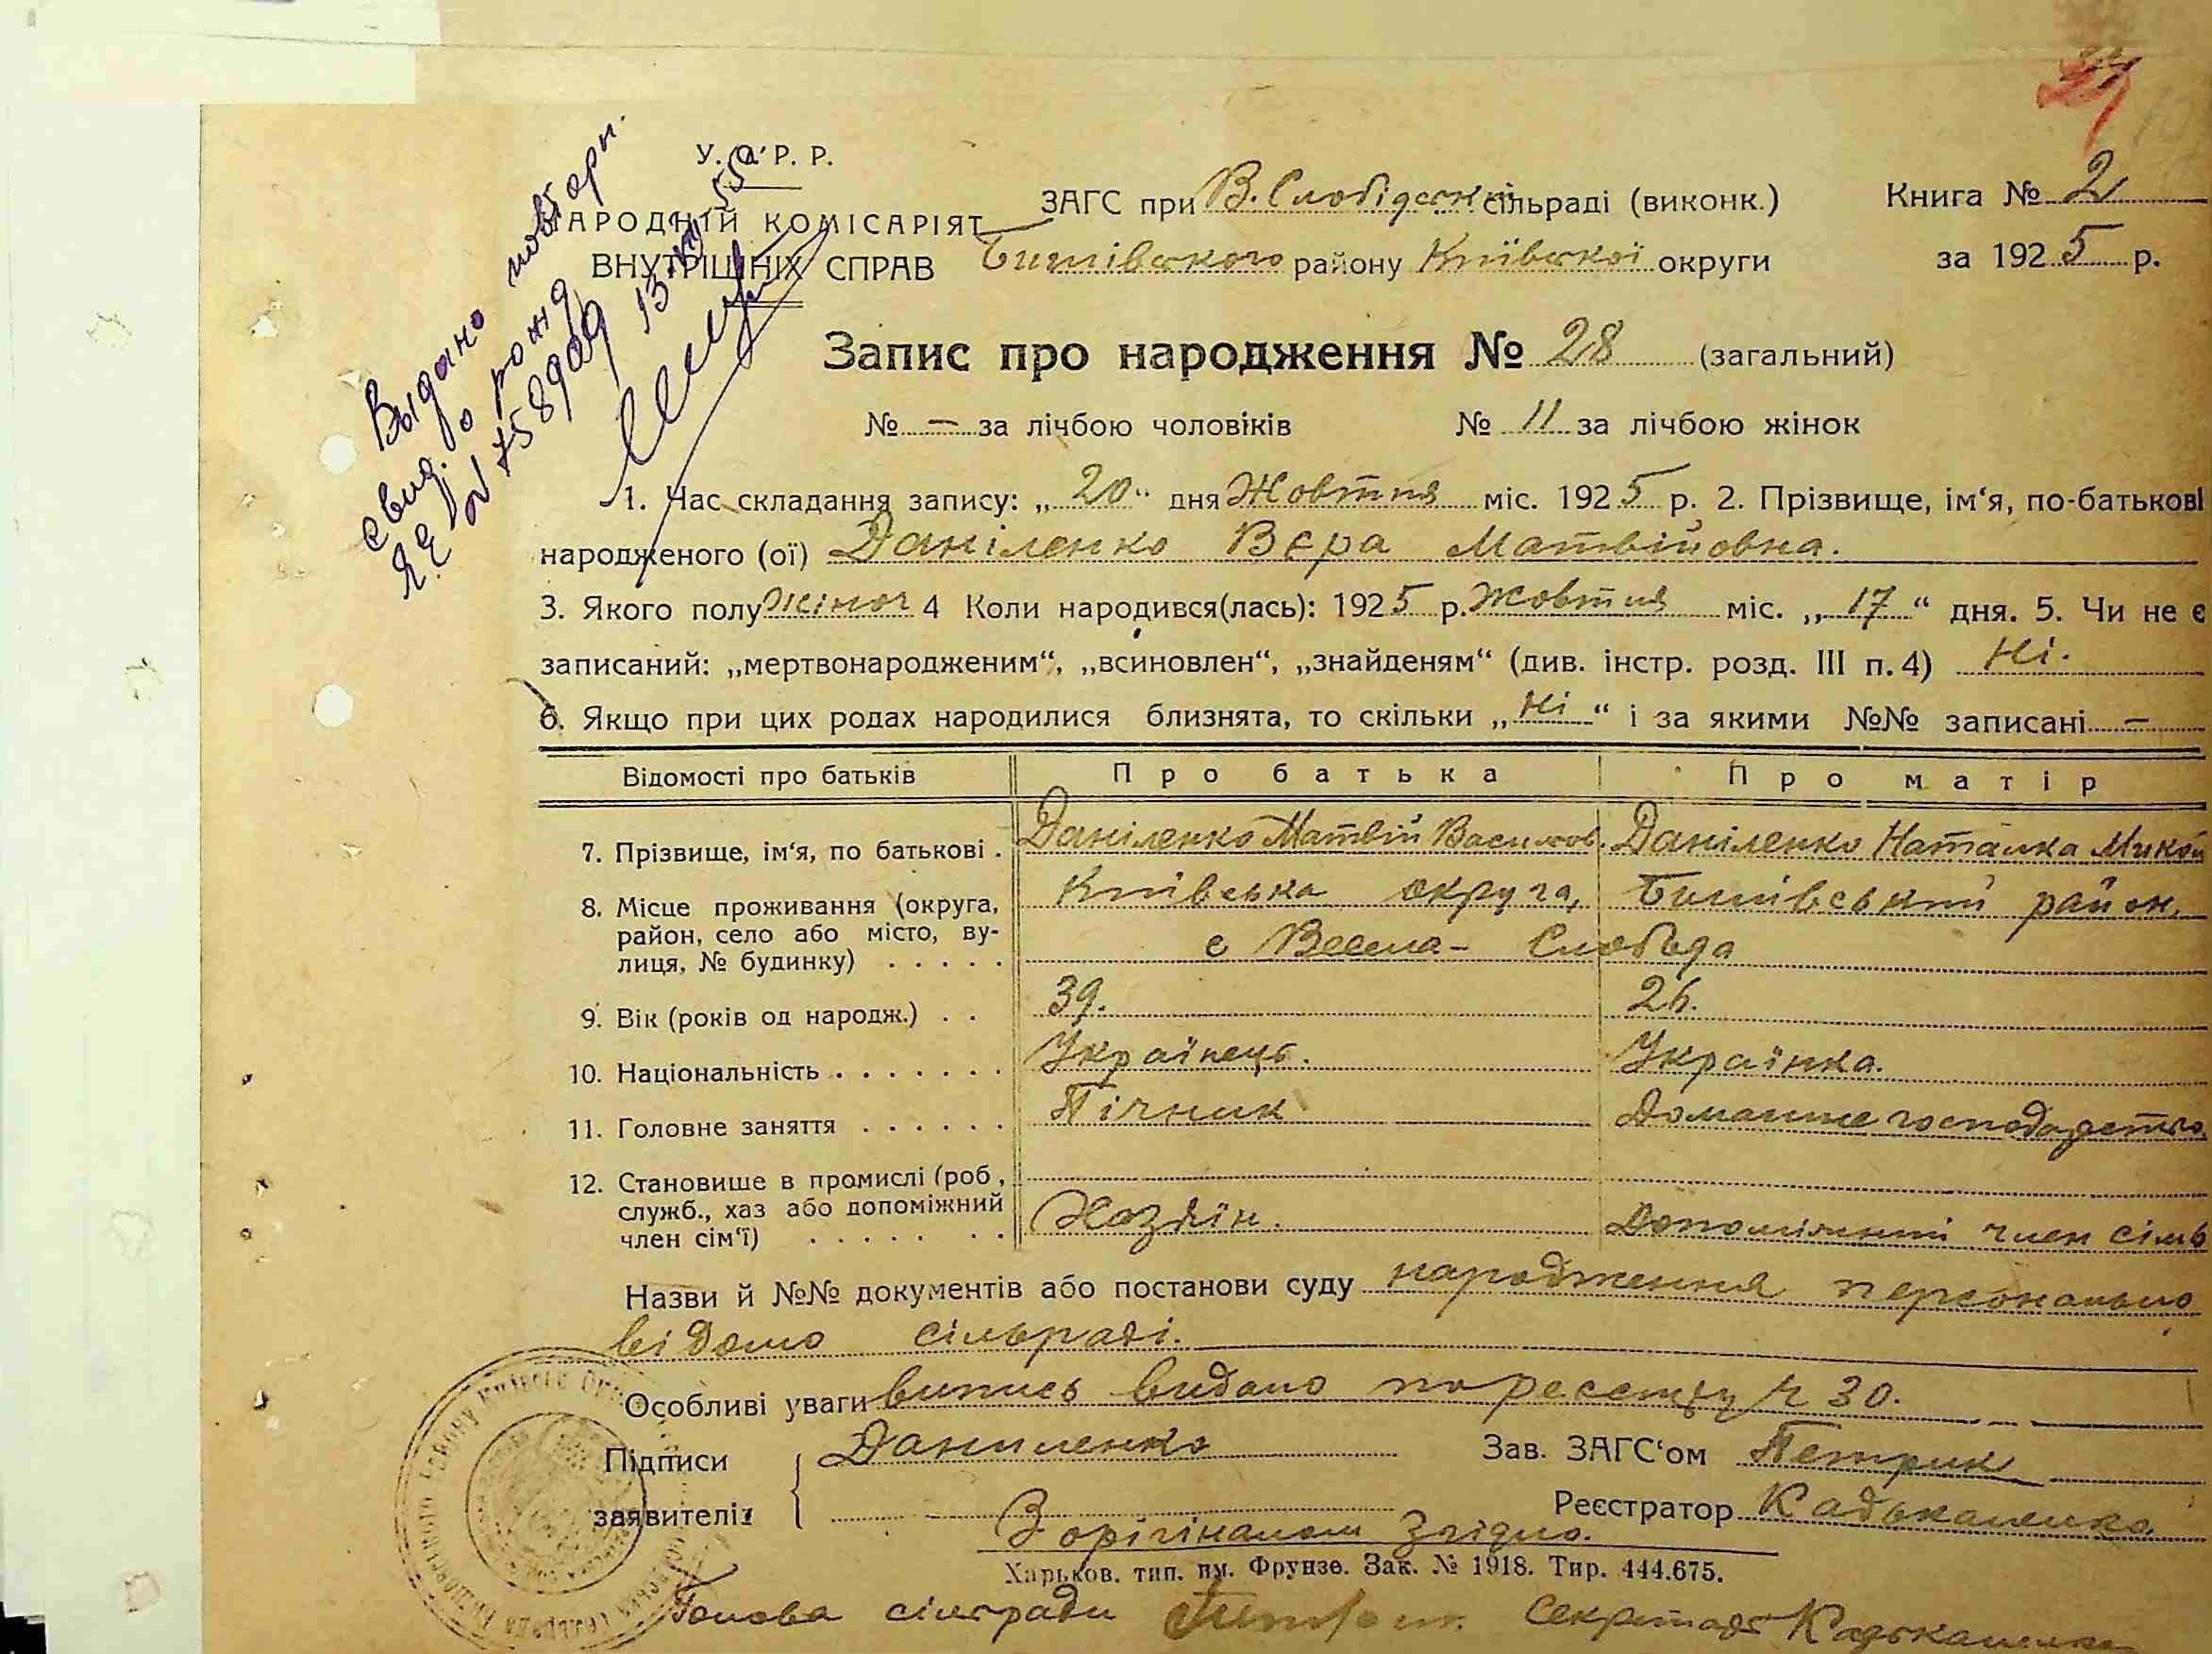 У. С. Р. Р.
НАРОДНІЙ КОМІСАРІЯТ
ВНУТРІШНІХ СПРАВ
ЗАГС при В. Слобідськ сільраді (виконк.)
Бишівського району Київської округи
Книга № 2
за 1925 р.
Выдано повторн.
свид. о рожд
ЯЕ № 758909 13
55
Запис про народження № 28 (загальний)
№ — за лічбою чоловіків № 11 за лічбою жінок
1. Час складання запису: „20“ дня Жовтня міс. 1925 р. 2. Прізвище, ім‘я, по-батькові
народженого (ої) Даніленко Вєра Матвійовна.
3. Якого полу жіноч 4 Коли народився(лась): 1925 р. Жовтня міс. „17“ дня. 5. Чи не є
записаний: „мертвонародженим“, „всиновлен“, „знайденям“ (див. інстр. розд. III п. 4) Ні.
6. Якщо при цих родах народилися близнята, то скільки „Ні“ і за якими №№ записані —
Відомості про батьків Про батька Про матір
7. Прізвище, ім‘я, по батькові . Даніленко Матвій Васильов. Даніленко Наталка Микол
8. Місце проживання (округа, Київська округа, Бишівський район,
район, село або місто, ву-
лиця, № будинку) . . . . . с Весела - Слобода
9. Вік (років од народж.) . . 39. 26.
10. Національність . . . . . . . Українець. Українка.
11. Головне заняття . . . . . . Пічник Домашнє господарство
12. Становище в промислі (роб ,
служб., хаз або допоміжний Хазяїн. Допоміжний член сімь
член сім‘ї) . . . . . . .
Назви й №№ документів або постанови суду народження персонально
відомо сільраді.
Особливі уваги випись видано по реєстру Ч 30.
Підписи Даниленко Зав. ЗАГС‘ом Петрик
заявителів Реєстратор Кадькаленко
З орігіналом згідно.
Харьков. тип. им. Фрунзе. Зак. № 1918. Тир. 444.675.
Голова сільради Секретарь Кадькаленко